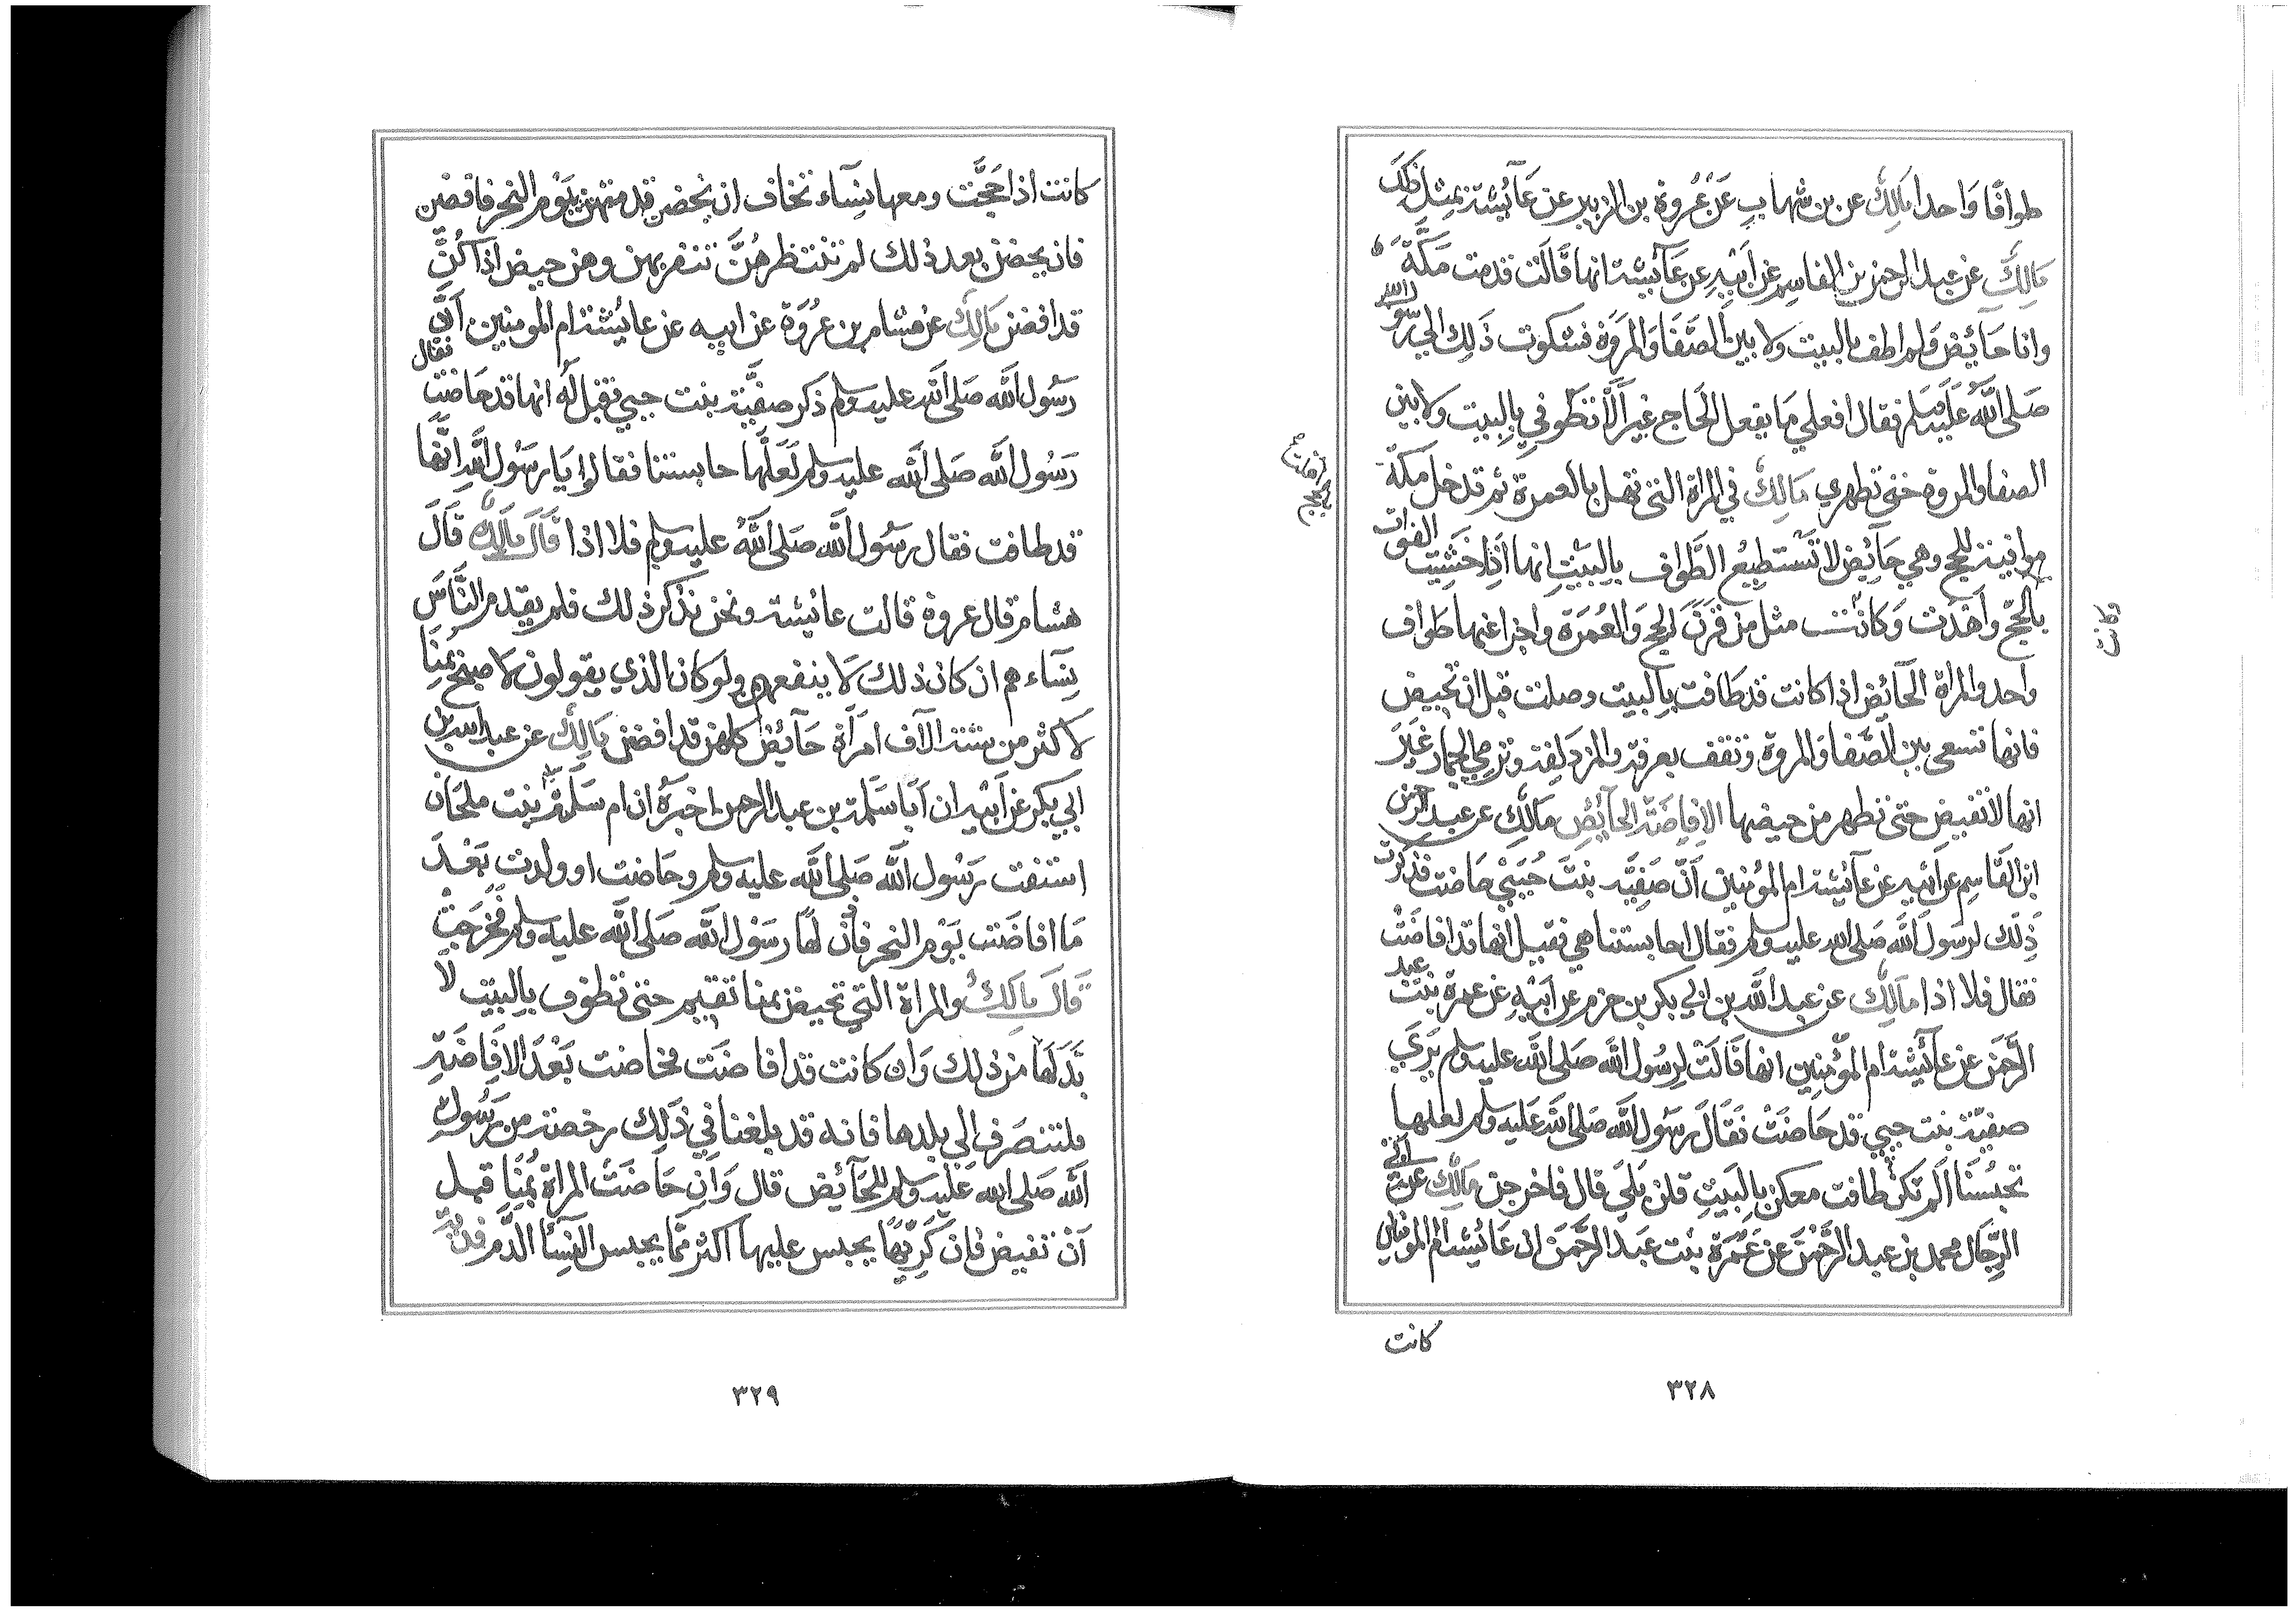 طوافًا وَاحدا مَالِكُ عن بن شهاب عَنْ عُروة بن الزبير عن عَآئشة بمثل ذلكَ
مَالِكَ عن عبد الرحمن بن القاسم عَن اَبيْهِ عن عَآئشة انها قَالَت قدمت مَكَّةَ
وانا حَآئض وَلم اطف بالبيت ولا بين الصَّفَا وَالمروَة فشكوت ذَلِك الى رسول الله
صَلى اللّٰهُ عَلَيه وَسَلم فقال افعلي مَا يفعل الحَاج غيرَ اَلَّا تَطُوفي بِالبيت ولا بين
الصفا والمروة حتى تطهري مَالِكُ في المراة التى تهل بالعمرة ثم تدخل مكة
موافية للحج وهي حَآئض لا تَسْتطيعُ الطَّواف بِالبَيْتِ انها اذَا خَشيت الفوات
بالحج واَهْدَت وَكانت مثل من قَرَنَ الحج وَالعُمرَة واجزا عنهما طَواف
واحد والمراة الحَآئض اذا كانت قد طَافت بِالبيت وصلت قبل ان تحيض
فانها تسعى بين الصَّفا وَالمروة وتقف بعرفة والمزدلفة وترمي الجمار غَيرَ
انها لا تفيض حتى تطهر من حيضها الافاضَة الحَآئض مَالِكُ عن عبد الرحمن
ابن القَاسِم عن ابيه عن عآئشة ام المؤمنين اَنَّ صَفِيَّة بنتَ حُيَيّ حَاضت فذكرت
ذلك لرسول اللّٰه صَلى الله عليه وسلم فقال احابستنا هي فقيل انها قد افاضَتْ
فقال فلا اذا مَالِكُ عن عبد اللّٰه بن ابي بكر بن حزم عن اَبيْهِ عن عمرة بنت عبد
الرَّحمن عن عآئشة ام المؤمنين انها قَالَتْ لِرسُول اللّٰه صَلى اللّٰه عليه وسلم يَرَي
صفيَّة بنت حيي قد حَاضَتْ فَقَالَ رسُول اللّٰه صَلى اللّٰه عَليه وَسلم لعلها
تحبسُنَا اَلم تكن طافت معكن بِالبَيتِ قلن بَلَي قال فاخرجن مَالِكُ عن ابي
الرِّجَال محمد بن عبد الرَّحْمَن عن عَمْرَة بنت عَبد الرَّحمَن ان عَائشة ام المومنين
وكانت
كانت
٣٢٨
كانت اذا حَجَّت ومعها نِسَآء تخاف ان يحضن قدمتهن يَوْم النحر فافضن
فان يحضن بعد ذلك لم تنتظرهُنَّ تنفر بهن وهن حيض اذا كُنَّ
قد افضن مَالِكُ عن هشام بن عُرْوَة عن ابيه عن عايشة ام المومنين اَنَّ
رَسُول اللّٰه صَلى اللّٰه عليه وسلم ذكر صفيَّة بنت حيي فقيل لَهُ انها قد حَاضت فقال
رَسُول اللّٰه صَلى اللّٰه عليه وَسلم لَعَلَّهَا حابستنا فقالوا يَا رسُول اللّٰه اِنَّهَا
قد طافت فقال رسُول اللّٰه صَلى اللّٰهُ عليه وسلم فلا اذا قَالَ مَالِكُ قَالَ
هشام قال عروة قالت عائشة ونحن نذكر ذلك فلم يقدم النَّاسَ
نِسَآءهم ان كان ذلك لَا ينفعهم ولو كان الذي يقولون لاصبح بمِنَا
لاكثر من ستة الآف امرَأة حَآئض كلهن قد افضن مَالِكُ عن عبد الله بن
ابي بكر عن اَبيْهِ ان اَبَا سَلَمة بن عبد الرحمن اخبَرَهُ ان ام سَلَمة بنت ملحان
استفتت رَسُول اللّٰه صَلى اللّٰه عليه وسلم وحَاضت او ولدت بَعْدَ
مَا افاضَت يَوْم النحر فاذن لهَا رسُول اللّٰه صَلى اللّٰه عليه وسلم فخَرَجَتْ
قَالَ مالكُ والمراة التي تحيض بمنا تقيم حتى تطوف بالبيت لَا
بُدَّ لَهَا من ذلك وَان كانت قد افاضَت فحاضت بَعْدَ الافَاضَة
فلتنصَرف الى بلدها فانه قد بلغنا في ذَلِك رخصة من رسُولِ
اللّٰه صَلى الله عَليه وسلم للحَآئض قال وَان حَاضَتْ المراة بمِنَا قبل
اَنْ تفيض فان كَرِيَّهَا يحبس عليها اكثر ممَّا يحبس النِّسَا الدَّم فدية
٣٢٩